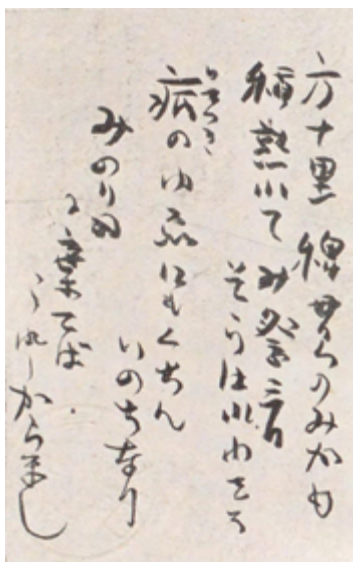 方十里 稗貫のみかも
稲熟れて み祭三日
そらはれわたる
いたつき
病のゆゑにもくちん
いのちなり
みのり
に棄てば
うれしからまし